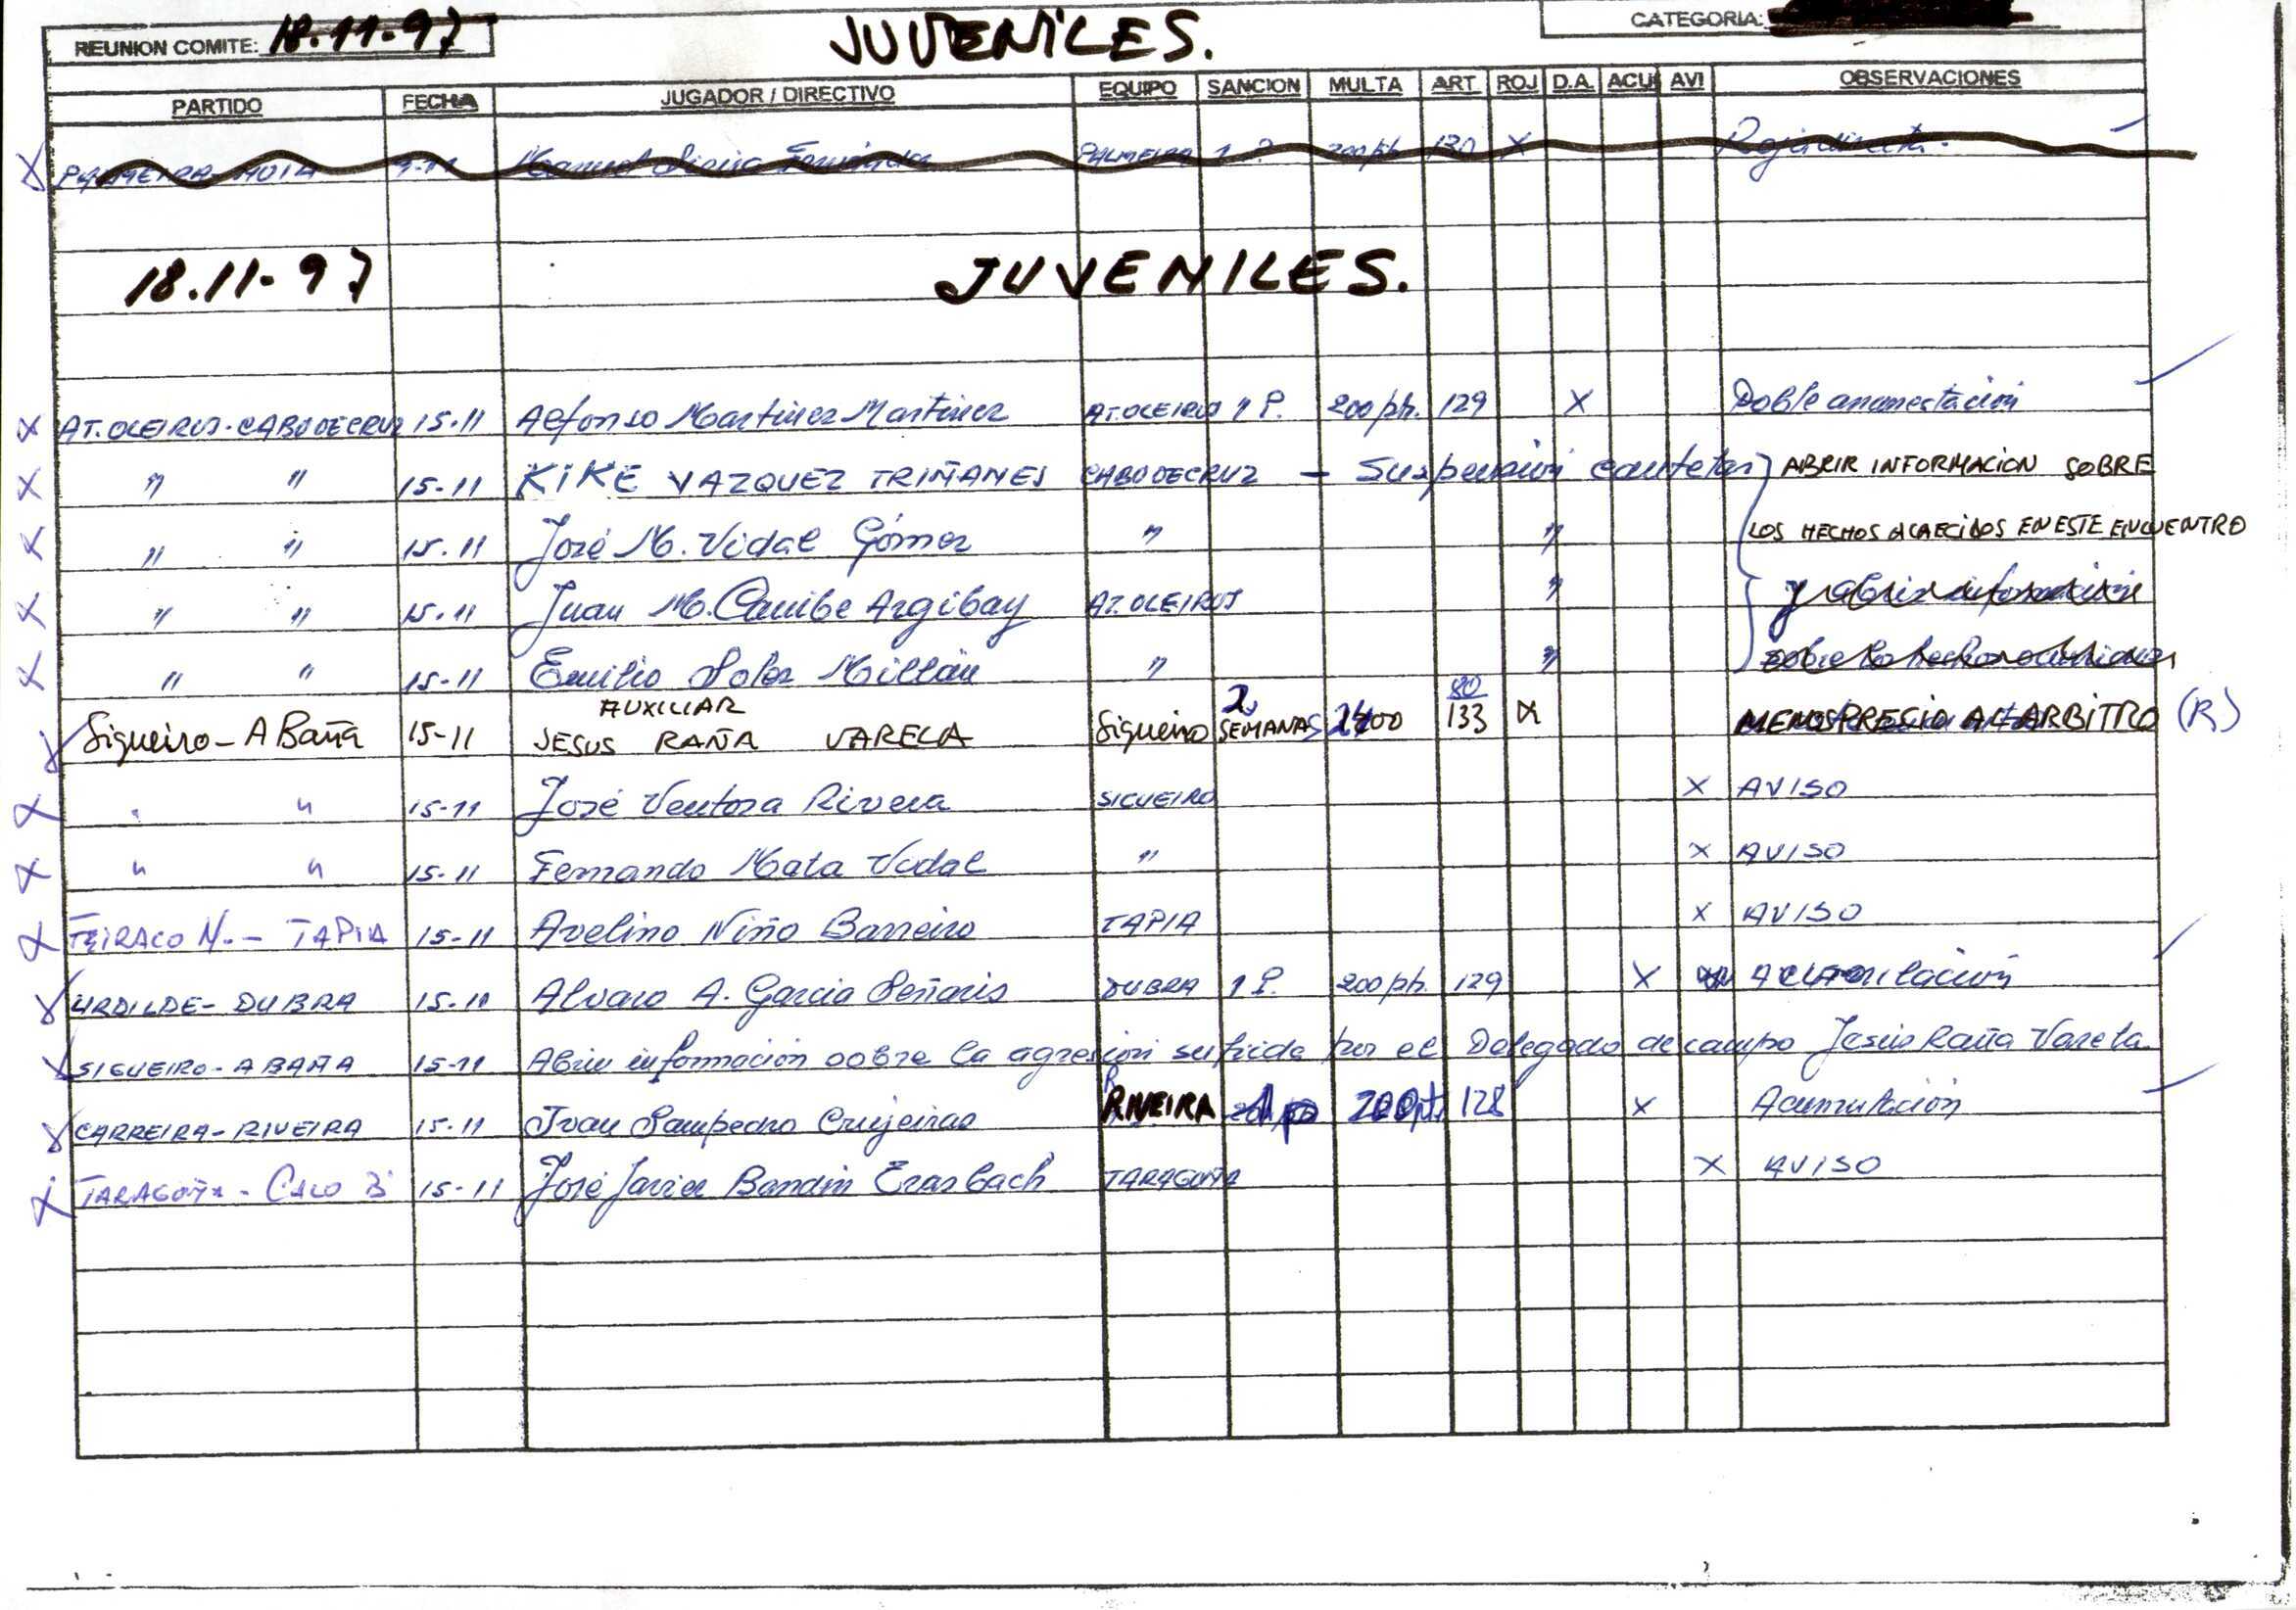 REUNION COMITE: 18.11-97 JUVENILES. CATEGORIA:
PARTIDO FECHA JUGADOR / DIRECTIVO EQUIPO SANCION MULTA ART ROJ D.A. ACU AVI OBSERVACIONES
X PALMEIRA-NOIA 9-11 Manuel PALMEIRA 1 P. 200 pts. 130 X Roja directa.
18.11-97 JUVENILES.
X AT.OLEIROS-CABODECRUZ 15-11 Alfonso Martinez Martinez AT.OLEIROS 1 P. 200 pts. 129 X Doble amonestación
X " " 15-11 KIKE VAZQUEZ TRIÑANES CABODECRUZ — Suspensión cautelar ABRIR INFORMACION SOBRE
X " " 15-11 José M. Vidal Gómez " " LOS HECHOS ACAECIDOS EN ESTE ENCUENTRO
X " " 15-11 Juan M. Caribe Argibay AT.OLEIROS " y abrir información
X " " 15-11 Emilio Soler Millán " " sobre los hechos ocurridos
Sigueiro-A Baña 15-11 AUXILIAR JESUS RAÑA VARELA Sigueiro 2 SEMANAS 2400 80 133 X MENOSPRECIO AL ARBITRO (R)
X " " 15-11 José Ventosa Rivera SIGUEIRO X AVISO
X " " 15-11 Fernando Mata Vidal " X AVISO
X TEIRACO N.- TAPIA 15-11 Avelino Niño Barreiro TAPIA X AVISO
X URDILDE- DUBRA 15-11 Alvaro A. Garcia Señaris DUBRA 1 P. 200 pts. 129 X Acumulación
X SIGUEIRO-A BAÑA 15-11 Abrir información sobre la agresión sufrida por el Delegado de campo Jesús Raña Varela
X CARREIRA-RIVEIRA 15-11 Juan Sampedro Crujeiras RIVEIRA 1 p 200 pts 128 X Acumulación
X TARAGOÑA - CALO B 15-11 José Javier Bandin TARAGOÑA X AVISO